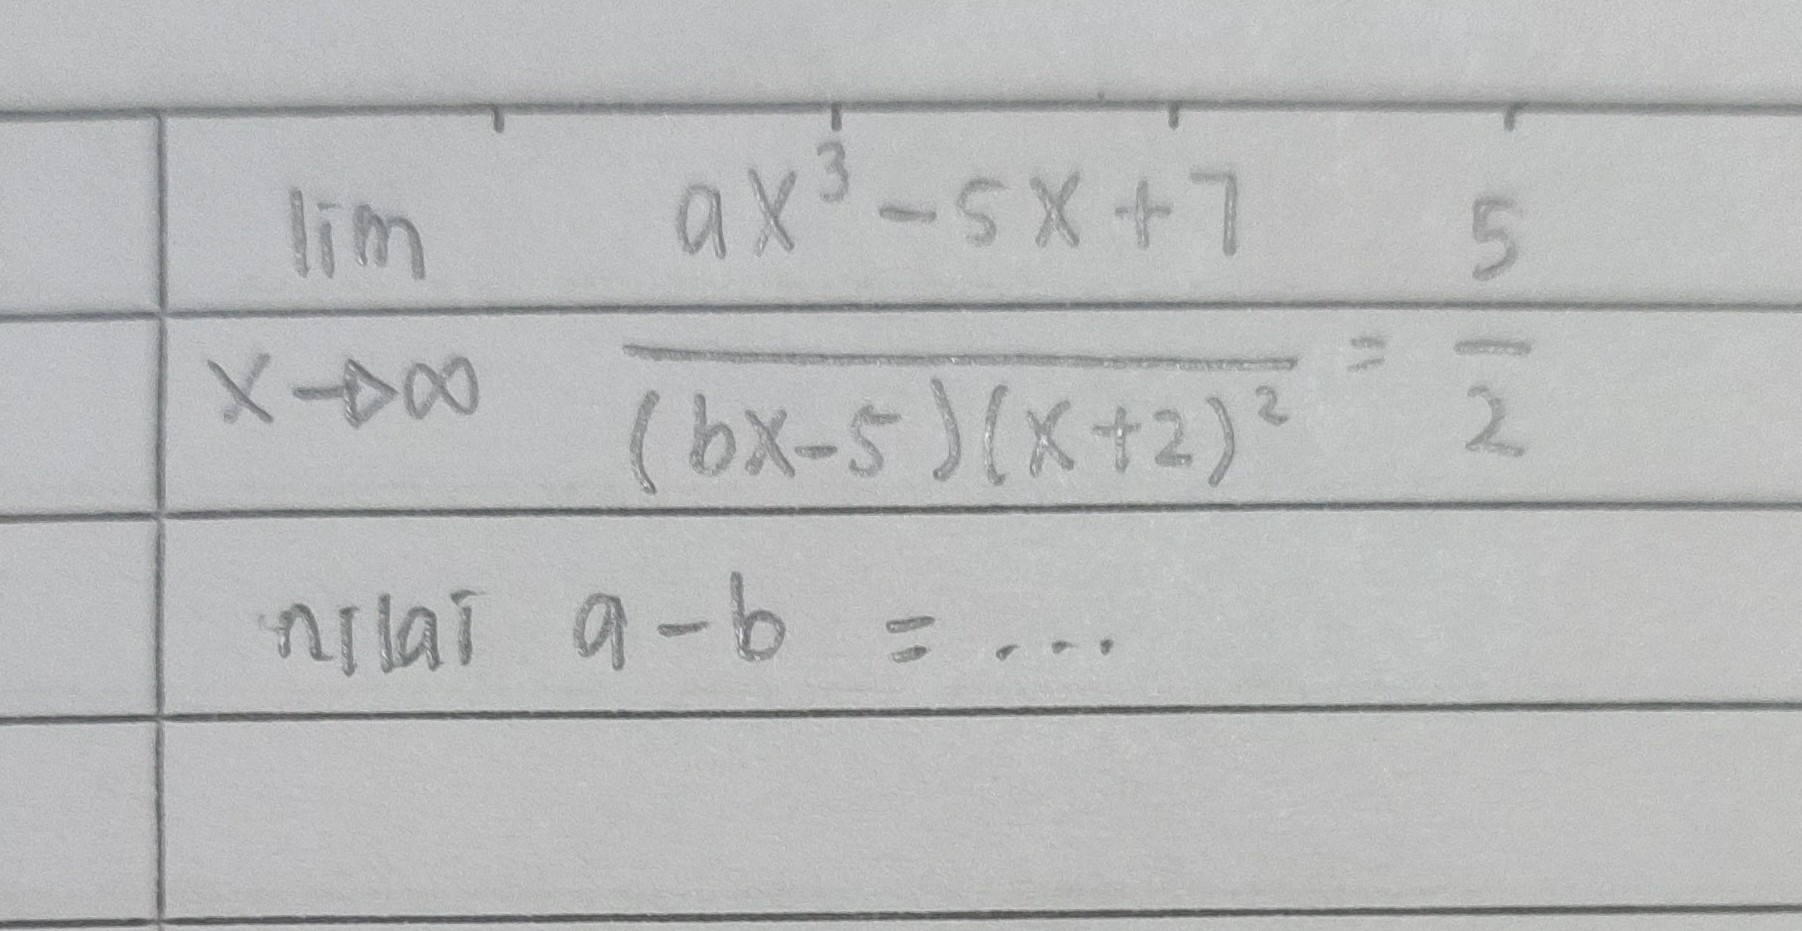 lim ax³ - 5x + 7 5
x→∞ (bx-5)(x+2)² = 2
nilai a - b = ...